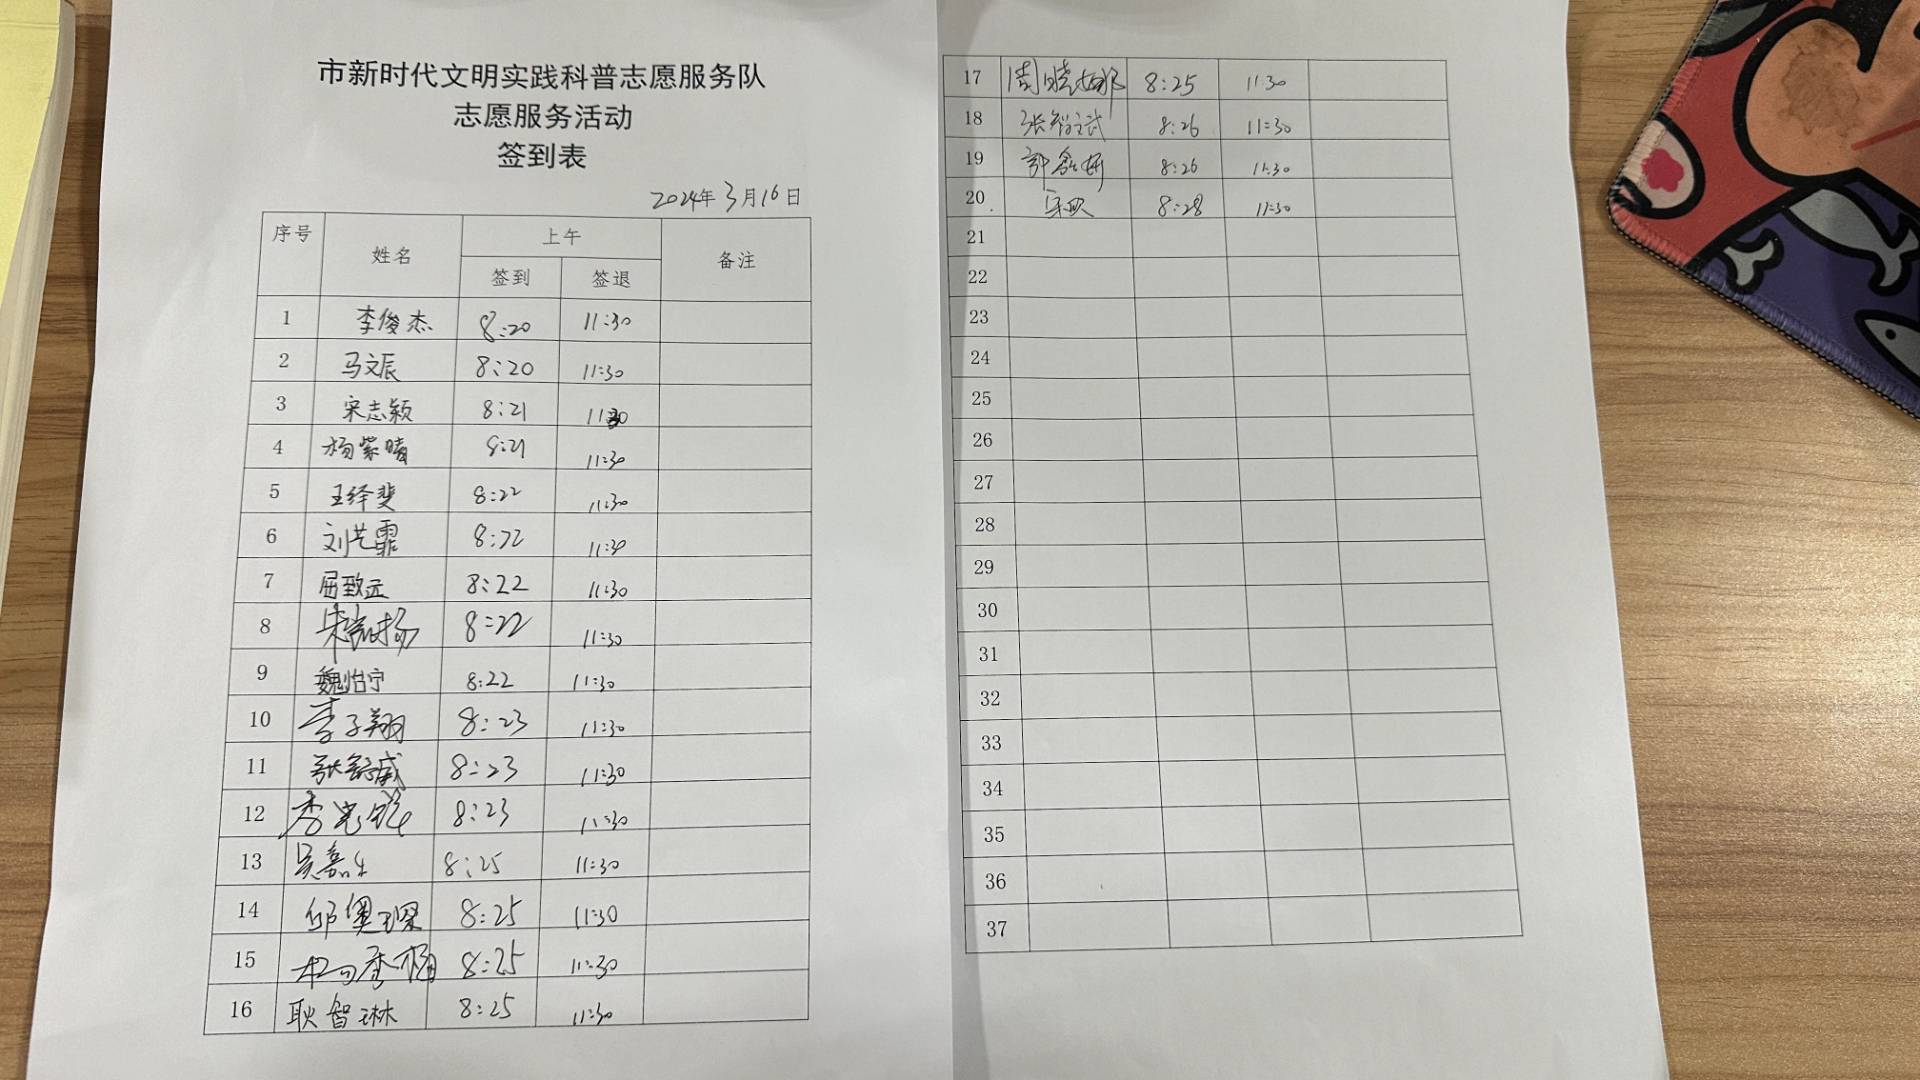 市新时代文明实践科普志愿服务队
志愿服务活动
签到表
2024年3月16日
序号 姓名 上午 备注
签到 签退
1 李俊杰 8:20 11:30
2 马文辰 8:20 11:30
3 宋志颖 8:21 11:30
4 杨紫晴 8:21 11:30
5 王绎斐 8:22 11:30
6 刘艺霏 8:22 11:30
7 屈致远 8:22 11:30
8 8:22 11:30
9 魏怡宁 8:22 11:30
10 李子翔 8:23 11:30
11 8:23 11:30
12 8:23 11:30
13 8:25 11:30
14 8:25 11:30
15 8:25 11:30
16 耿智琳 8:25 11:30
17 周晓娜 8:25 11:30
18 8:26 11:30
19 8:26 11:30
20 8:28 11:30
21
22
23
24
25
26
27
28
29
30
31
32
33
34
35
36
37